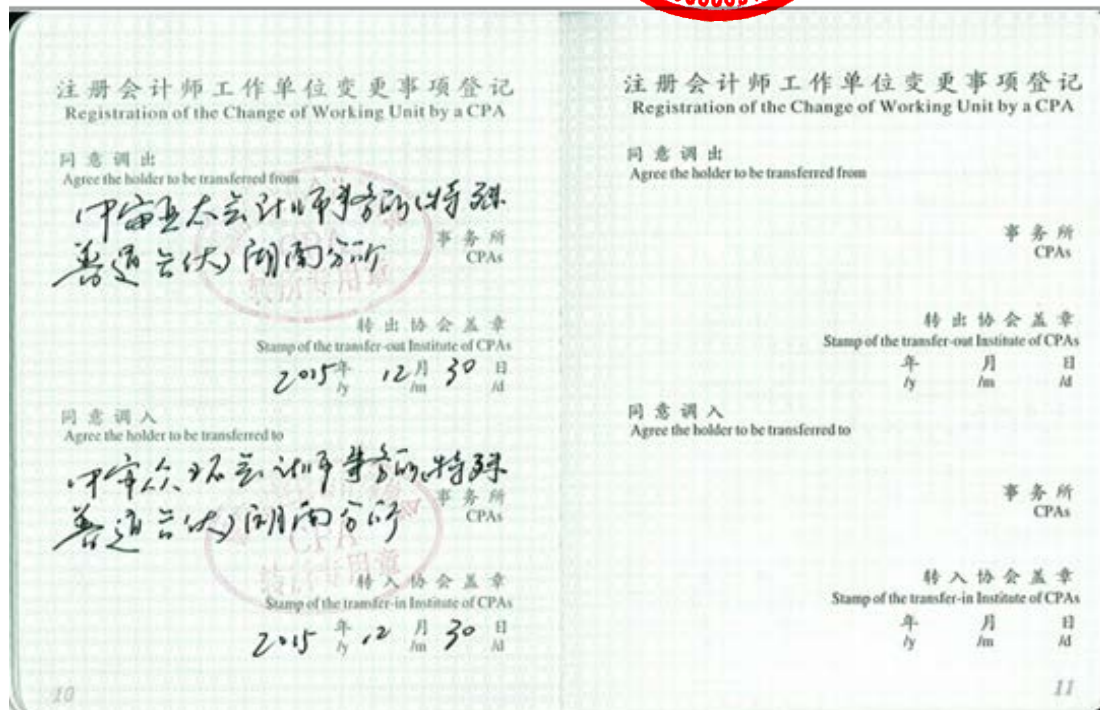 注册会计师工作单位变更事项登记
Registration of the Change of Working Unit by a CPA
同意调出
Agree the holder to be transferred from
中审亚太会计师事务所(特殊
普通合伙)湖南分所
事务所
CPAs
转出协会盖章
Stamp of the transfer-out Institute of CPAs
2015年 12月 30日
/y /m /d
同意调入
Agree the holder to be transferred to
中审众环会计师事务所(特殊
普通合伙)湖南分所
事务所
CPAs
CPA
转入协会盖章
Stamp of the transfer-in Institute of CPAs
2015年 12月 30日
/y /m /d
10
注册会计师工作单位变更事项登记
Registration of the Change of Working Unit by a CPA
同意调出
Agree the holder to be transferred from
事务所
CPAs
转出协会盖章
Stamp of the transfer-out Institute of CPAs
年 月 日
/y /m /d
同意调入
Agree the holder to be transferred to
事务所
CPAs
转入协会盖章
Stamp of the transfer-in Institute of CPAs
年 月 日
/y /m /d
11